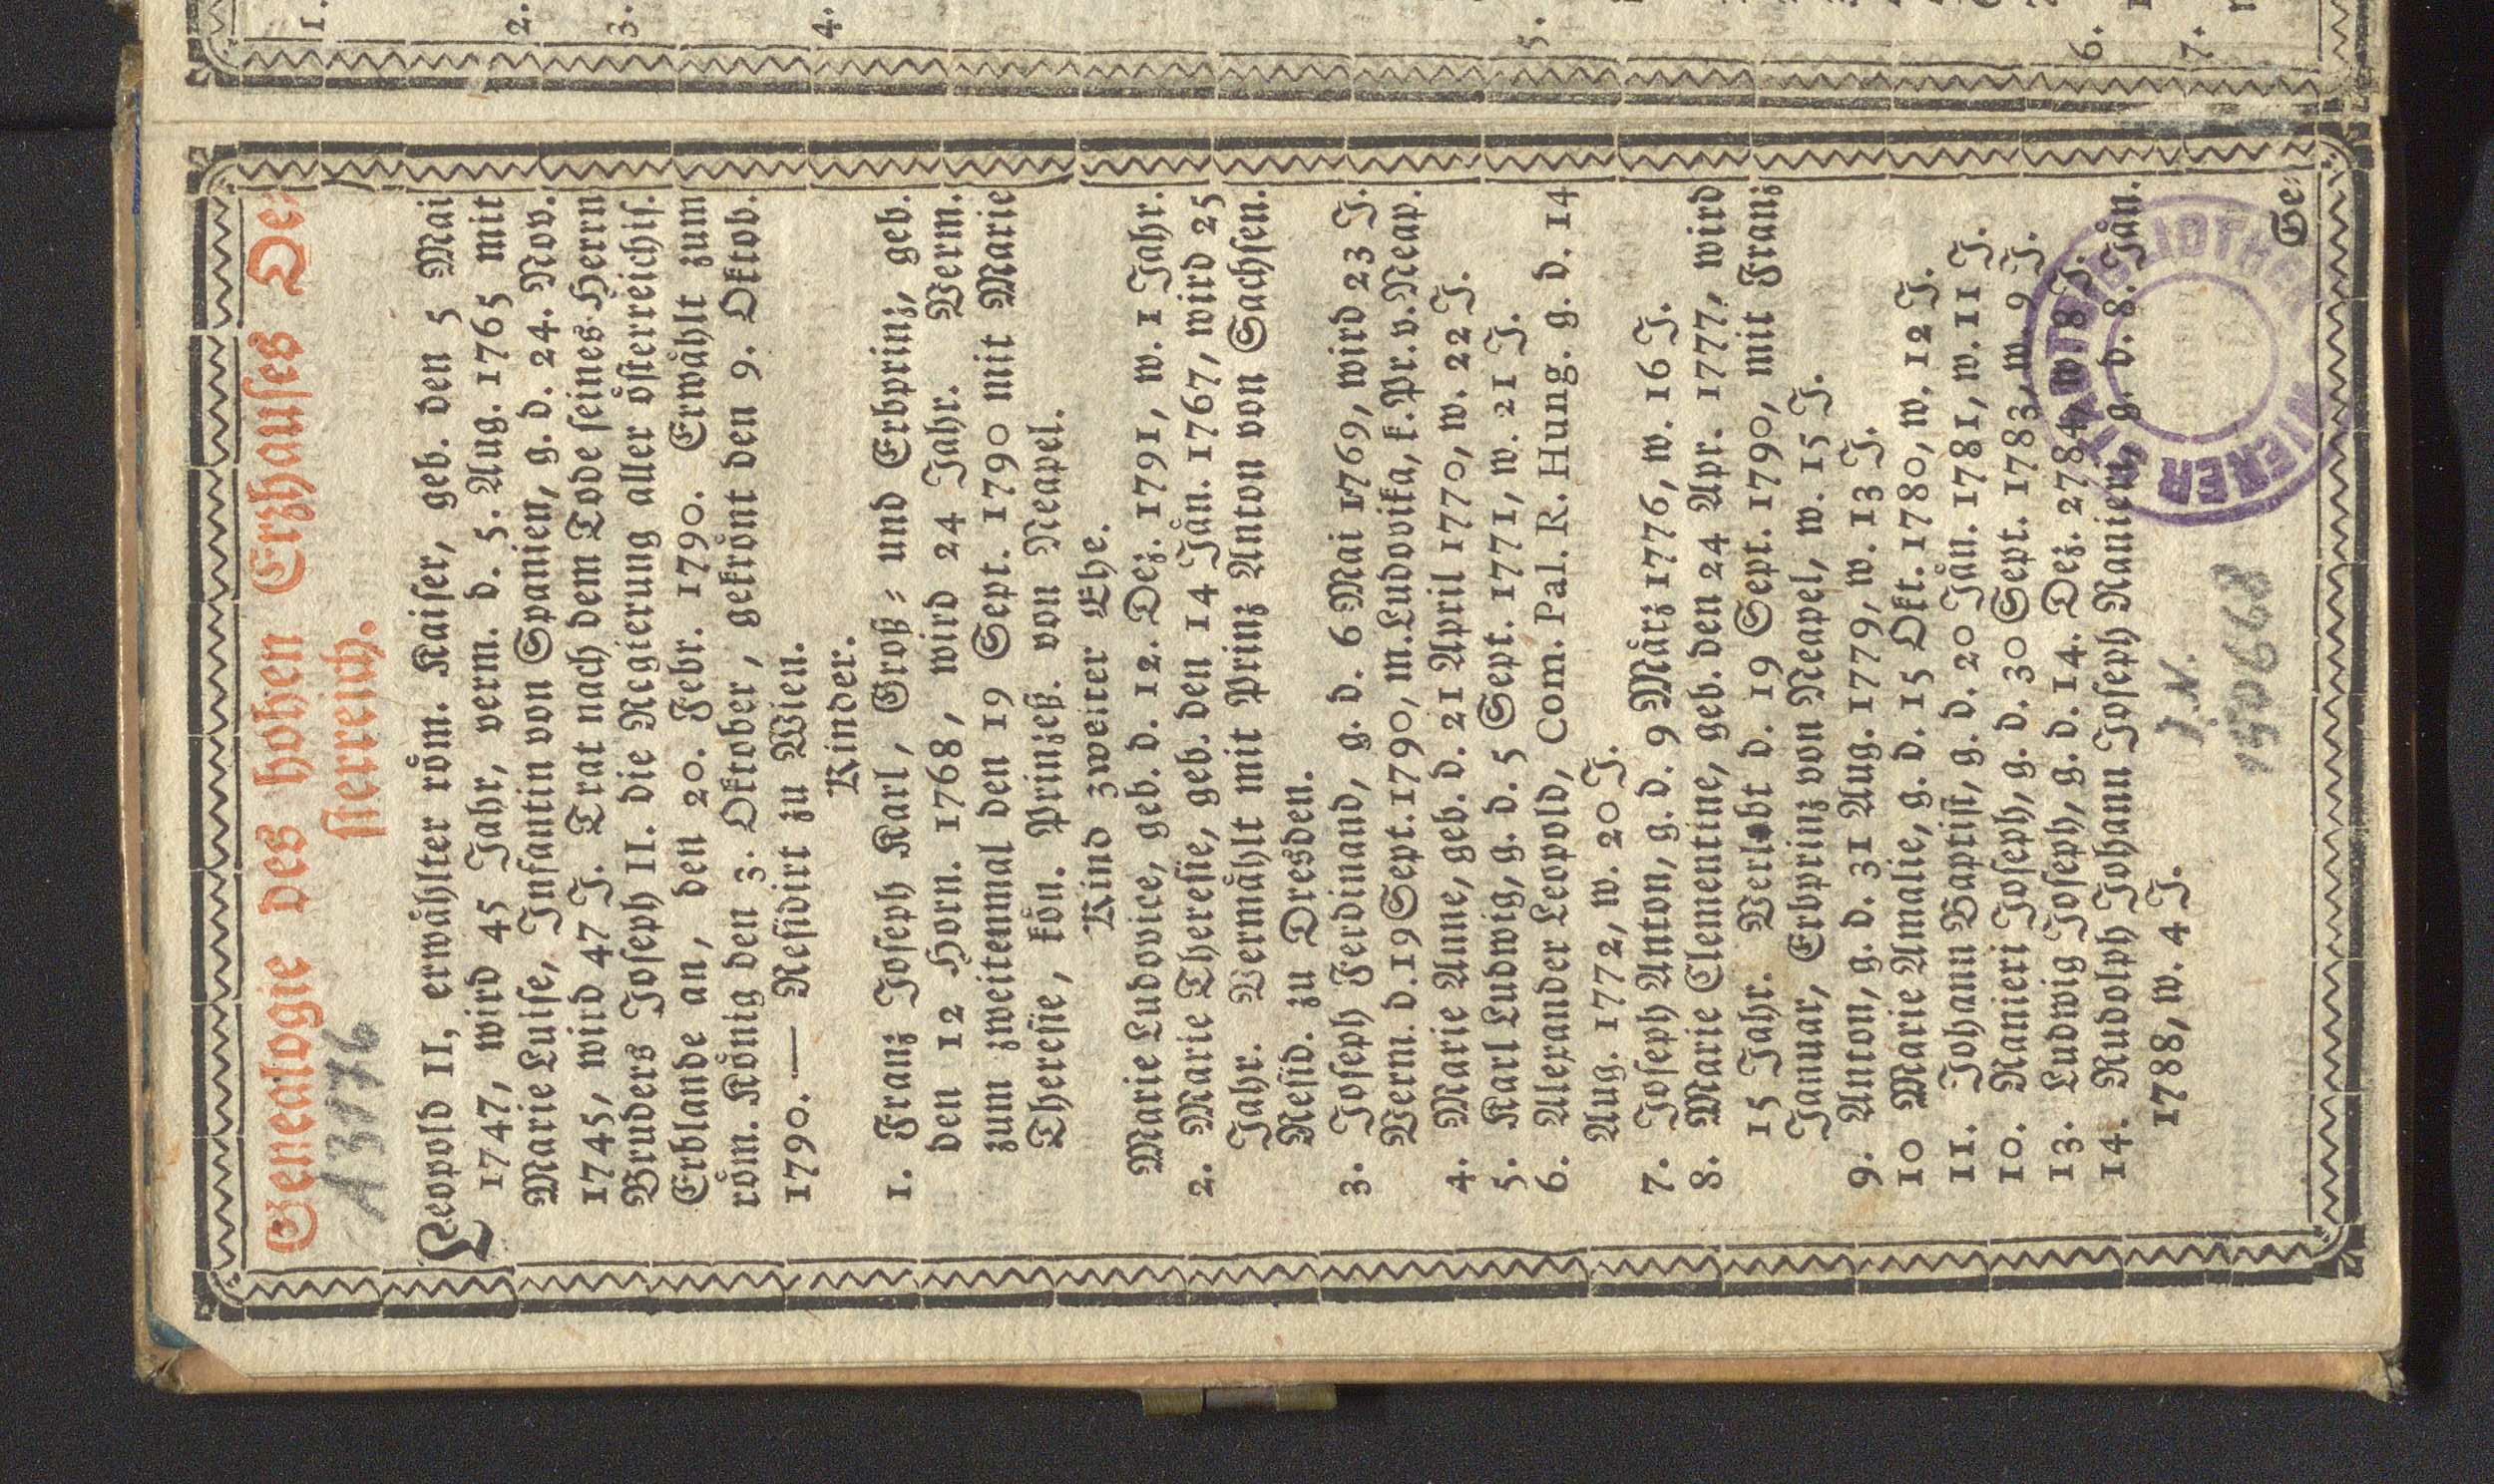 Genealogie des hohen Erzhauses Oe⸗
sterreich.
A 3176
Leopold II, erwählter röm. Kaiser, geb. den 5 Mai
1747, wird 45 Jahr, verm. d. 5. Aug. 1765 mit
Marie Luise, Infantin von Spanien, g. d. 24. Nov.
1745, wird 47 J. Trat nach dem Tode seines Herrn
Bruders Joseph II. die Regierung aller österreichis.
Erblande an, den 20. Febr. 1790. Erwählt zum
röm. König den 3. Oktober, gekrönt den 9. Oktob.
1790. — Residirt zu Wien.
Kinder.
1. Franz Joseph Karl, Groß⸗ und Erbprinz, geb.
den 12 Horn. 1768, wird 24 Jahr. Verm.
zum zweitenmal den 19 Sept. 1790 mit Marie
Theresie, kön. Prinzeß. von Neapel.
Kind zweiter Ehe.
Marie Ludovice, geb. d. 12. Dez. 1791, w. 1 Jahr.
2. Marie Theresie, geb. den 14 Jän. 1767, wird 25
Jahr. Vermählt mit Prinz Anton von Sachsen.
Resid. zu Dresden.
3. Joseph Ferdinand, g. d. 6 Mai 1769, wird 23 J.
Verm. d. 19 Sept. 1790, m. Ludovika, k. Pr. v. Neap.
4. Marie Anne, geb. d. 21 April 1770, w. 22 J.
5. Karl Ludwig, g. d. 5 Sept. 1771, w. 21 J.
6. Alexander Leopold, Com. Pal. R. Hung. g. d. 14
Aug. 1772, w. 20 J.
7. Joseph Anton, g. d. 9 März 1776, w. 16 J.
8. Marie Clementine, geb. den 24 Apr. 1777, wird
15 Jahr. Verlobt d. 19 Sept. 1790, mit Franz
Januar, Erbprinz von Neapel, w. 15 J.
9. Anton, g. d. 31 Aug. 1779, w. 13 J.
10 Marie Amalie, g. d. 15 Okt. 1780, w. 12 J.
11. Johann Baptist, g. d. 20 Jän. 1781, w. 11 J.
10. Ranieri Joseph, g. d. 30 Sept. 1783, w. 9 J.
13. Ludwig Joseph, g. d. 14. Dez. 2784, w. 8 J.
14. Rudolph Johann Joseph Ranieri, g. d. 8. Jän.
1788, w. 4 J.
J.N.
150668
WIENER STADTBIBLIOTHEK
Ge⸗
1.
2.
3.
4.
5.
6.
7.